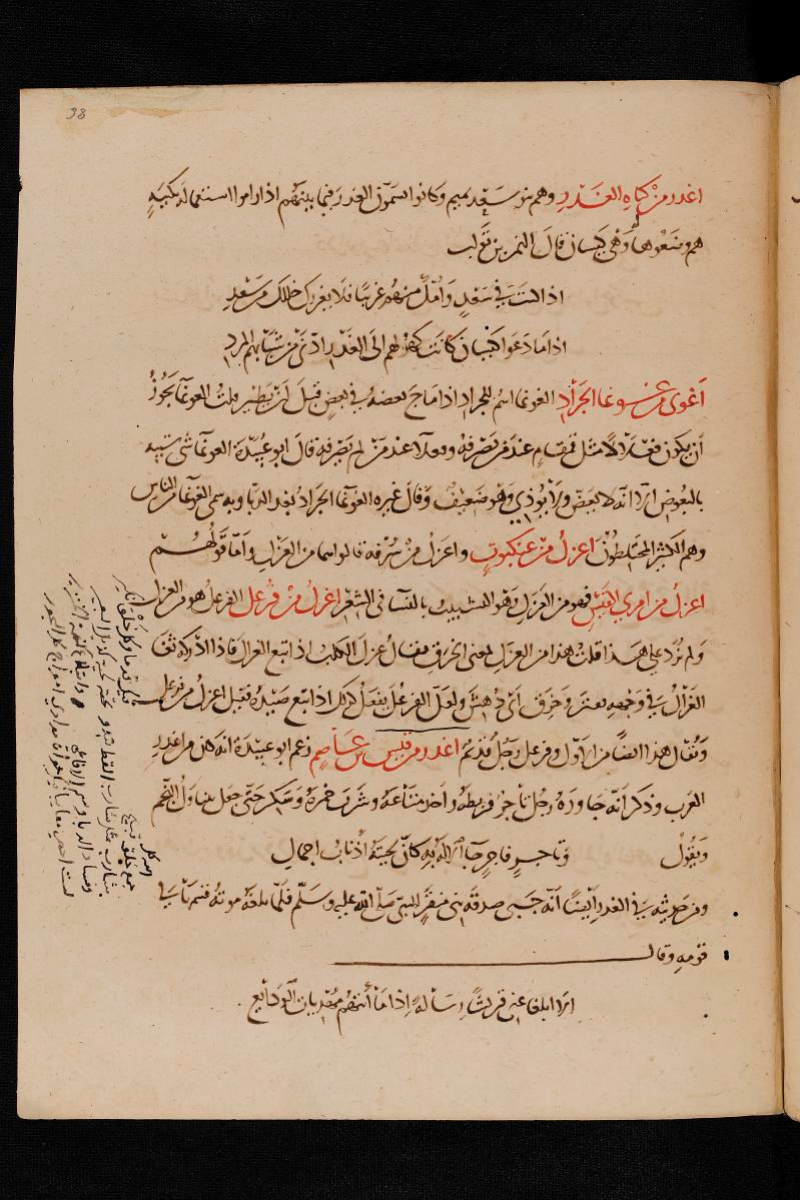 38
اغدر من كناة الغدر وهم بنو سعد تميم وكانوا يسمون الغدر فيما بينهم اذا راموا استعماله بكنية
هم وضعوها وهي كيسان قال النمر بن تولب
اذا كنت في سعد وامك منهم غريبا فلا يغررك خالك من سعد
اذا ما دعوا كيسان كانت كهولهم الى الغدر ادنى من شبابهم المرد
اغوى من غوغا الجراد الغوغا اسم للجراد اذا ماج بعضه في بعض قبل ان يطير قلت الغوغا يجوز
ان يكون فعلالا مثل قمقام عند من يصرفه وفعلا عند من لم يصرفه قال ابو عبيدة الغوغا شي شبيه
بالبعوض الا انه لا يعض ولا يوذي وهو ضعيف وقال غيره الغوغا الجراد بعد الدبا وبه سمى الغوغا من الناس
وهم الكثير المختلطون اغزل من عنكبوت واغزل من سرفة قالوا هما من الغزل واما قولهم
اغزل من امري القيس فهو من الغزل وهو التشبيب بالنسا في الشعر اغزل من فرعل الفرعل هو من الغزل
ولم يزد على هذا قلت هذا من الغزل بمعنى الخرق يقال غزل الكلب اذا تبع الغزال فاذا ادركه ثغا
الغزال في وجهه ففتر وخرق اى دهش ولعل الفرعل يفعل كذلك اذا تبع صيده فقيل اغزل من فرعل
ويقال هذا ايضا من الاول وفرعل رجل قديم اغدر من قيس بن عاصم زعم ابو عبيدة انه كان من اغدر
العرب وذكر انه جاوره رجل تاجر فربطه واخذ متاعه وشرب خمره وسكر حتى جعل يتناول النجم
ويقول وتاجر فاجر جا الاله به كان لحيته اذناب اجمال
ومن حديثه في الغدر ايضا انه جبى صدقة بنى منقر للنبي صلى الله عليه وسلم فلما بلغه موته قسمها في
قومه وقال
الا ابلغا عنى قريشا رسالة اذا ما اتتهم مهديات الودايع